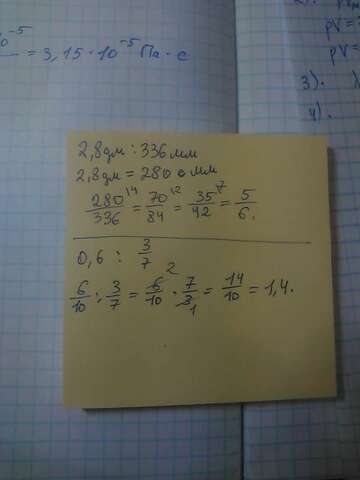 = 3,15·10⁻⁵ Па·с
pV =
pV =
3).
4).
2,8дм : 336 мм
2,8дм = 280 мм
280/336 ¹⁴ = 70/84 ¹² = 35/42 ⁷ = 5/6.
0,6 : 3/7
6/10 : 3/7 = 6/10 · 7/3 = 14/10 = 1,4.